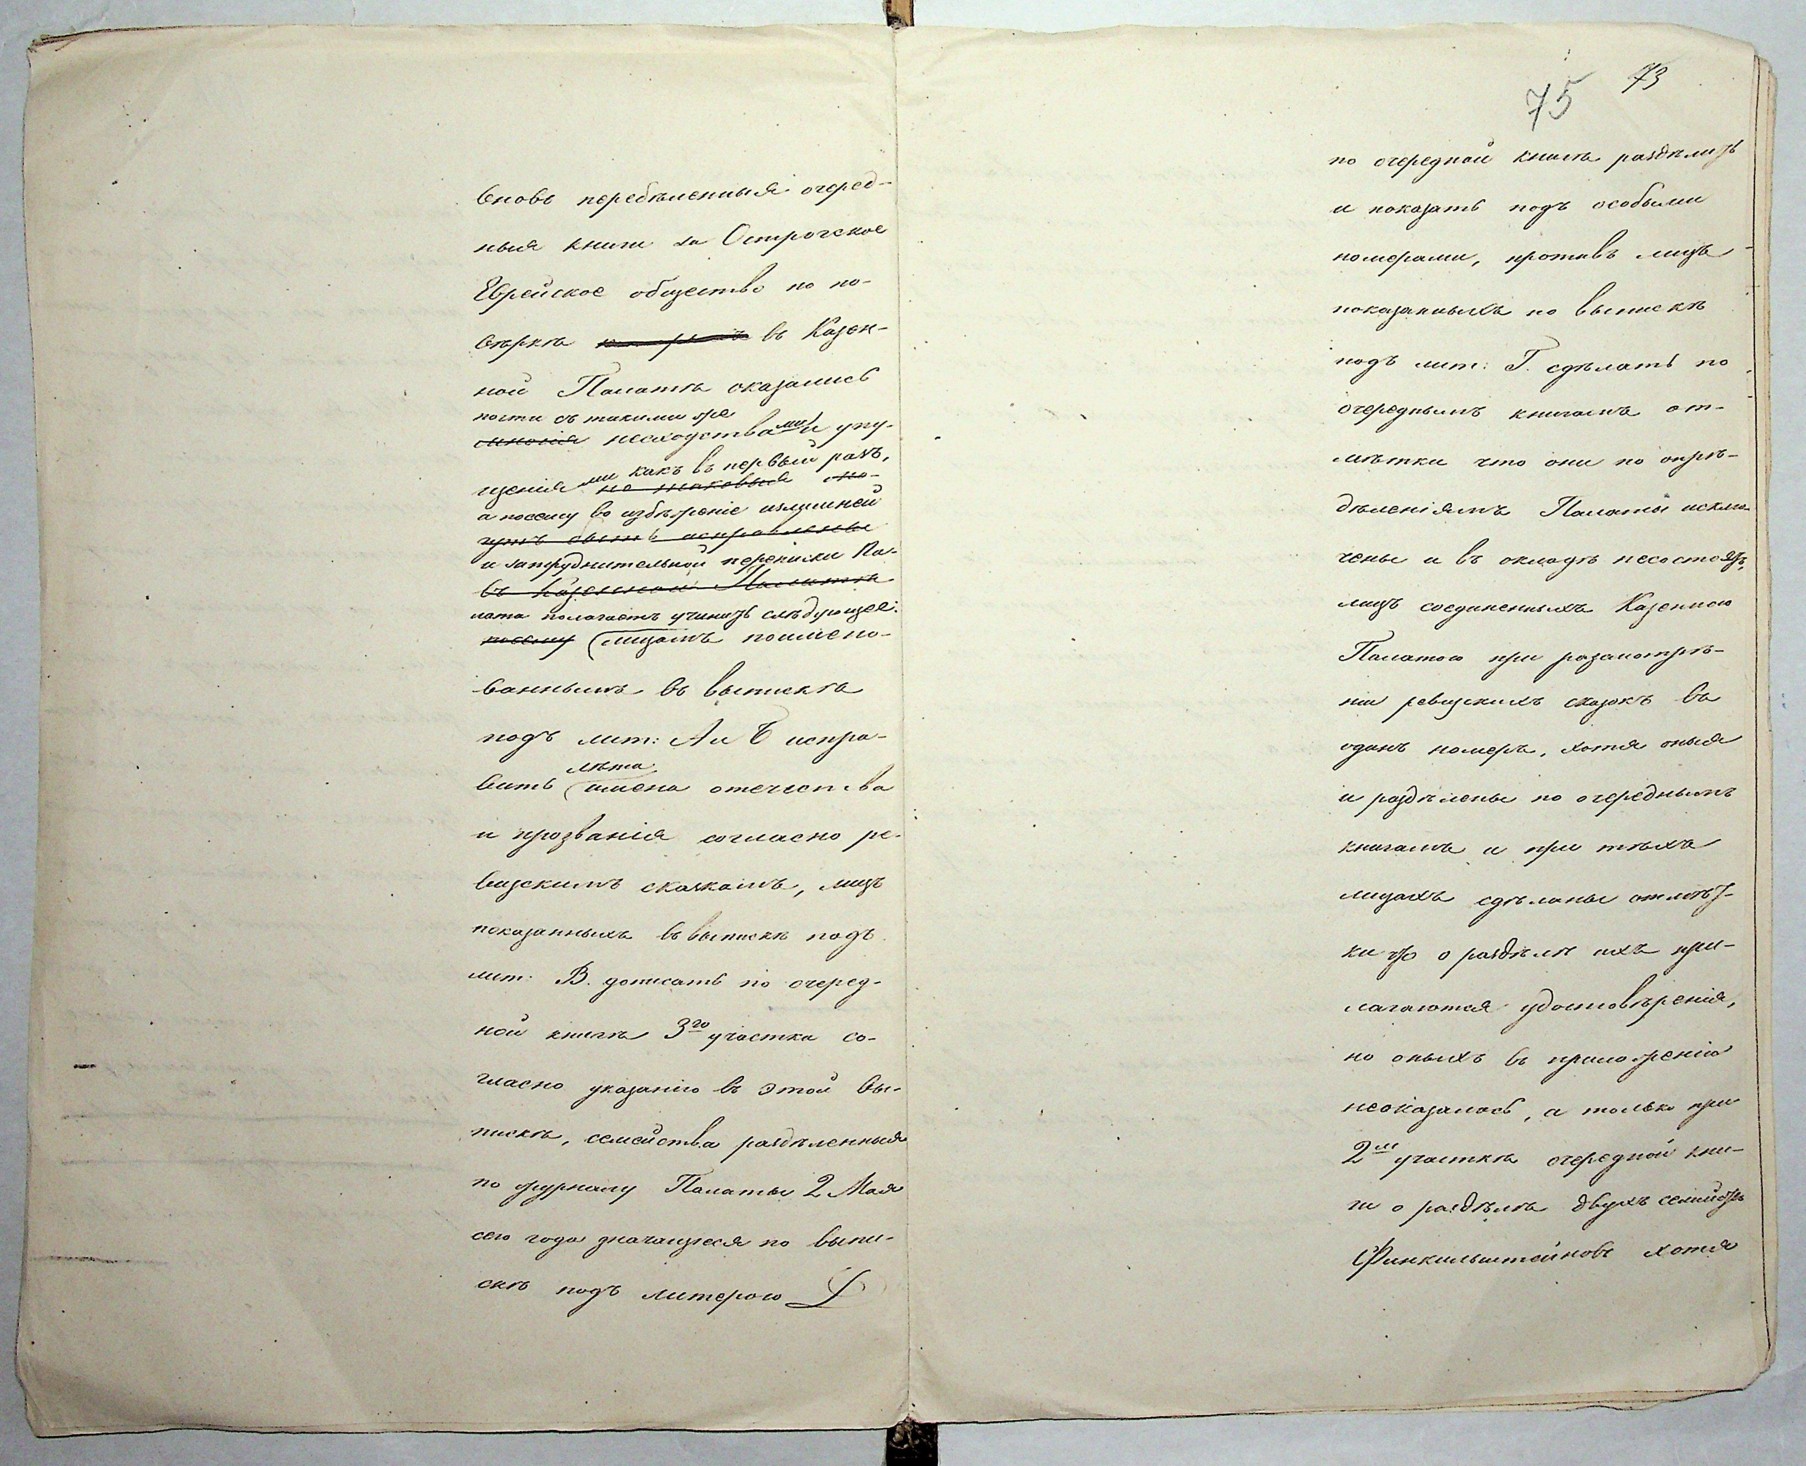 вновь перебѣленныя очеред-
ныя книги за Острогское
Еврейское общество по по-
вѣркѣ въ Казен-
ной Палатѣ оказались
почти съ такими же
многія несходствами и упу-
ми какъ въ первый разъ,
щенія но таковыя мо-
а посему во избѣжаніе излишней
гутъ быть исправлены
и затруднительной переписки Па-
въ Казенной Палатѣ
лата полагаетъ учинить слѣдующее:
посему лицамъ поимено-
ваннымъ въ выпискѣ
подъ лит: А и Б испра-
лѣта
вить имена отечества
и прозванія согласно ре-
визскимъ сказкамъ, лицъ
показанныхъ въ выпискѣ подъ
лит: В. дописать по очеред-
ной книгѣ 3го участка со-
гласно указанію въ этой вы-
пискѣ, семейства раздѣленныя
по журналу Палаты 2 Мая
сего года значащіеся по выпи-
скѣ подъ литерою
75 73
по очередной книгѣ раздѣлить
и показать подъ особыми
номерами, противъ лицъ
показанныхъ по выпискѣ
подъ лит: Г. сдѣлать по
очереднымъ книгамъ от-
мѣтки что они по опре-
дѣленіямъ Палаты исклю-
чены и въ окладѣ несостоятъ,
лицъ соединенныхъ Казенною
Палатою при разсмотрѣ-
ніи ревизскихъ сказокъ въ
одинъ номеръ, хотя оныя
и раздѣлены по очереднымъ
книгамъ и при тѣхъ
лицахъ сдѣланы отмѣт-
ки что о раздѣлѣ ихъ при-
лагаются удостовѣренія,
но оныхъ въ приложеніи
неоказалось, а только при
2м участкѣ очередной кни-
ги о раздѣлѣ двухъ семействъ
Финкильштейновъ хотя